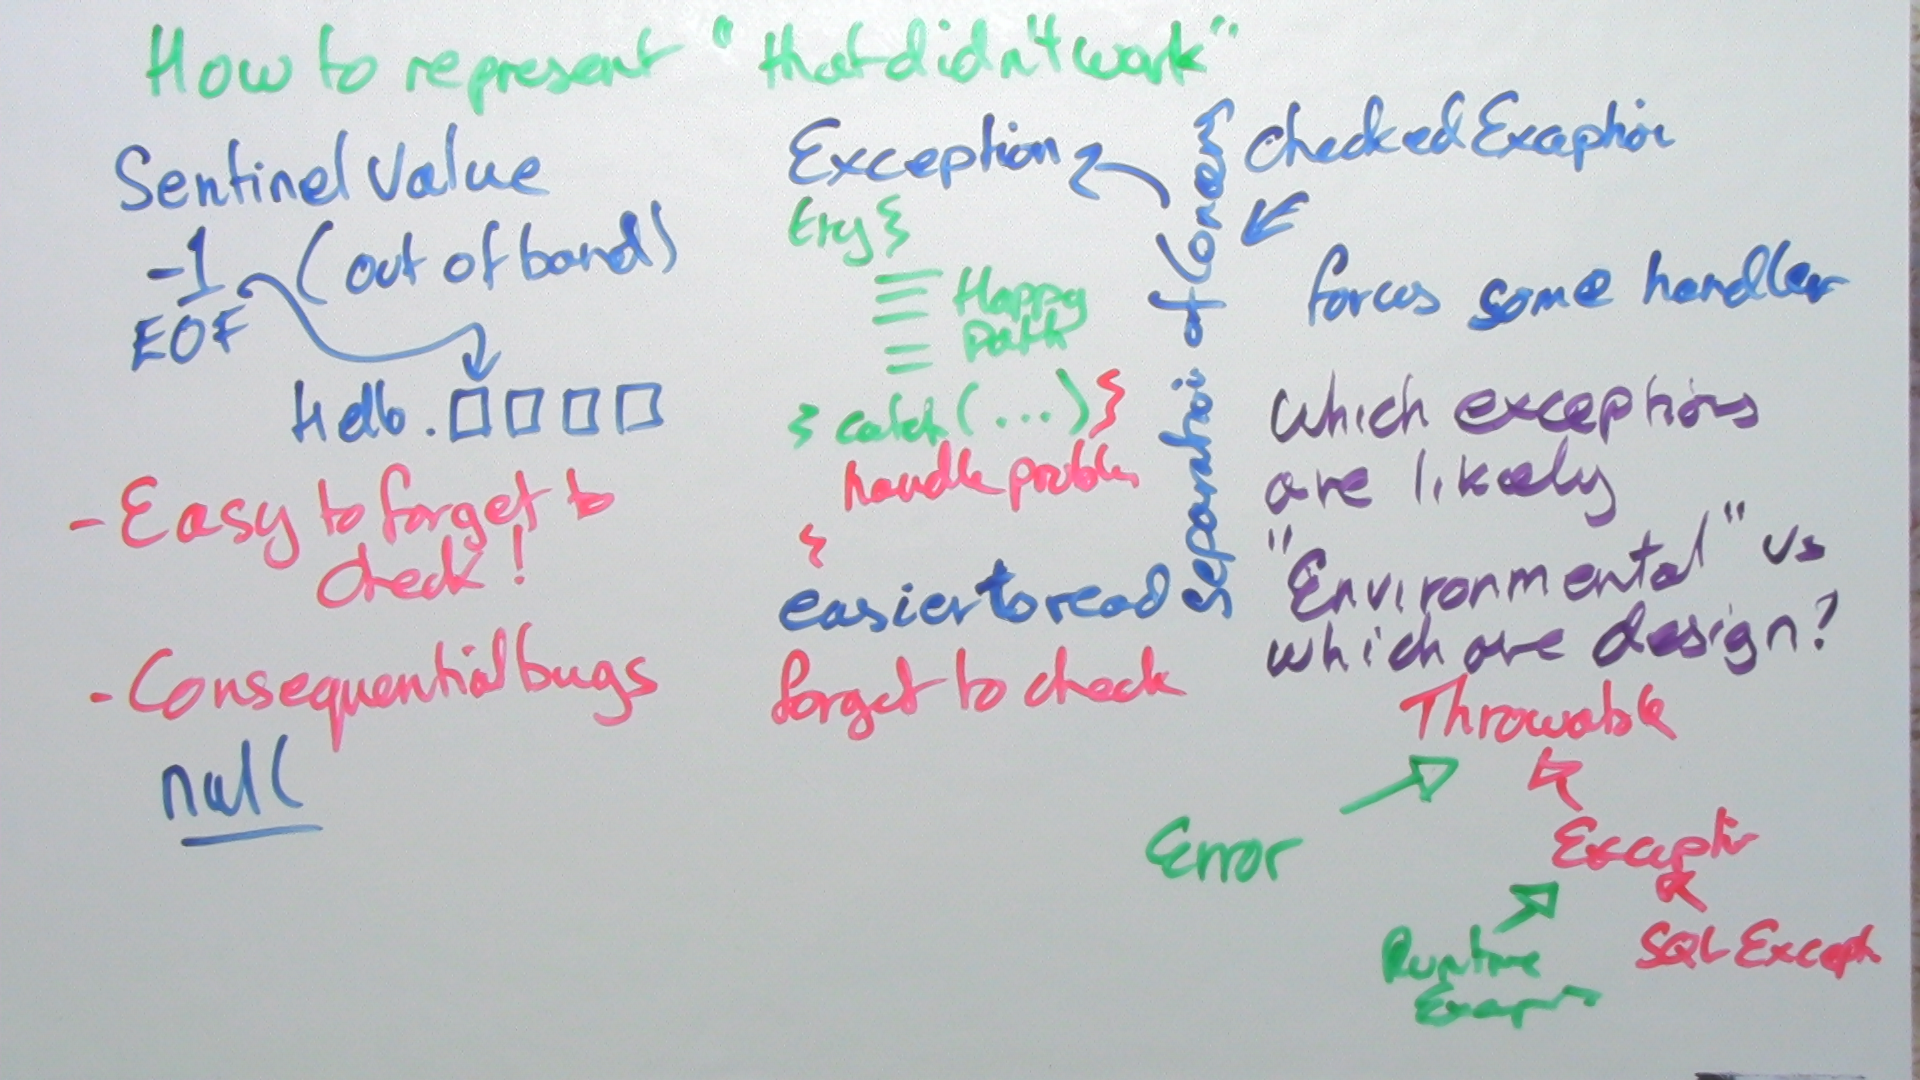 How to represent "that didn't work"
Sentinel Value
-1 (out of band)
EOF
Hello.
- Easy to forget to
check!
- Consequential bugs
null
Exception
try {
Happy
path
} catch (...) {
handle problem
}
easier to read
forget to check
separation of
Checked Exception
forces some handler
Which exceptions
are likely
"Environmental" vs
which are design?
Throwable
Error
Exceptio
Runtime
SQL Except